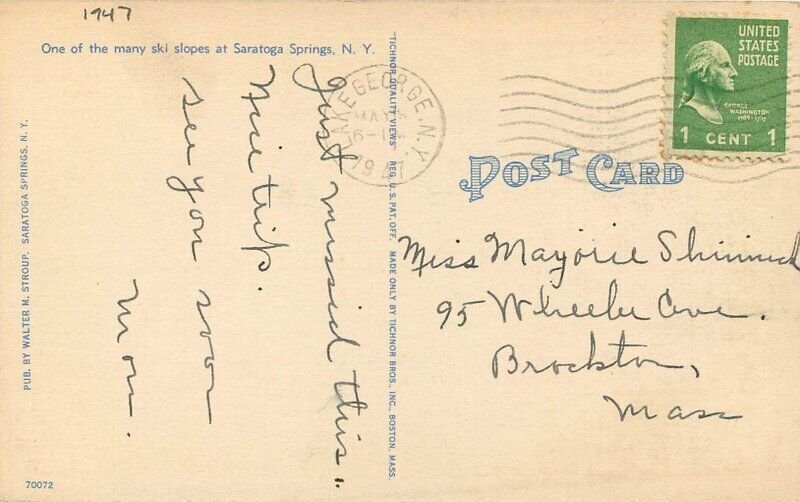 1947
One of the many ski slopes at Saratoga Springs, N. Y.
Just missid this.
Nice trip.
see you soon
Mom.
PUB. BY WALTER M. STROUP, SARATOGA SPRINGS, N. Y.
70072
"TICHNOR QUALITY VIEWS" REG. U. S. PAT. OFF. MADE ONLY BY TICHNOR BROS., INC., BOSTON, MASS.
LAKE GEORGE, N.Y.
MAY
UNITED
STATES
POSTAGE
GEORGE
WASHINGTON
1789-1797
1 CENT 1
POST CARD
Miss Marjorie
95 Wheeler Ave.
Brockton,
Mass